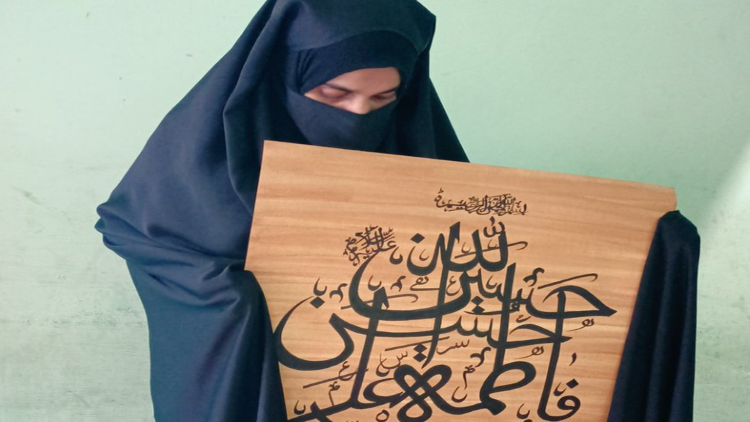 بسم الله الرحمن الرحيم
عليه السلام
الله
حسين
حسن
فاطمة
علي